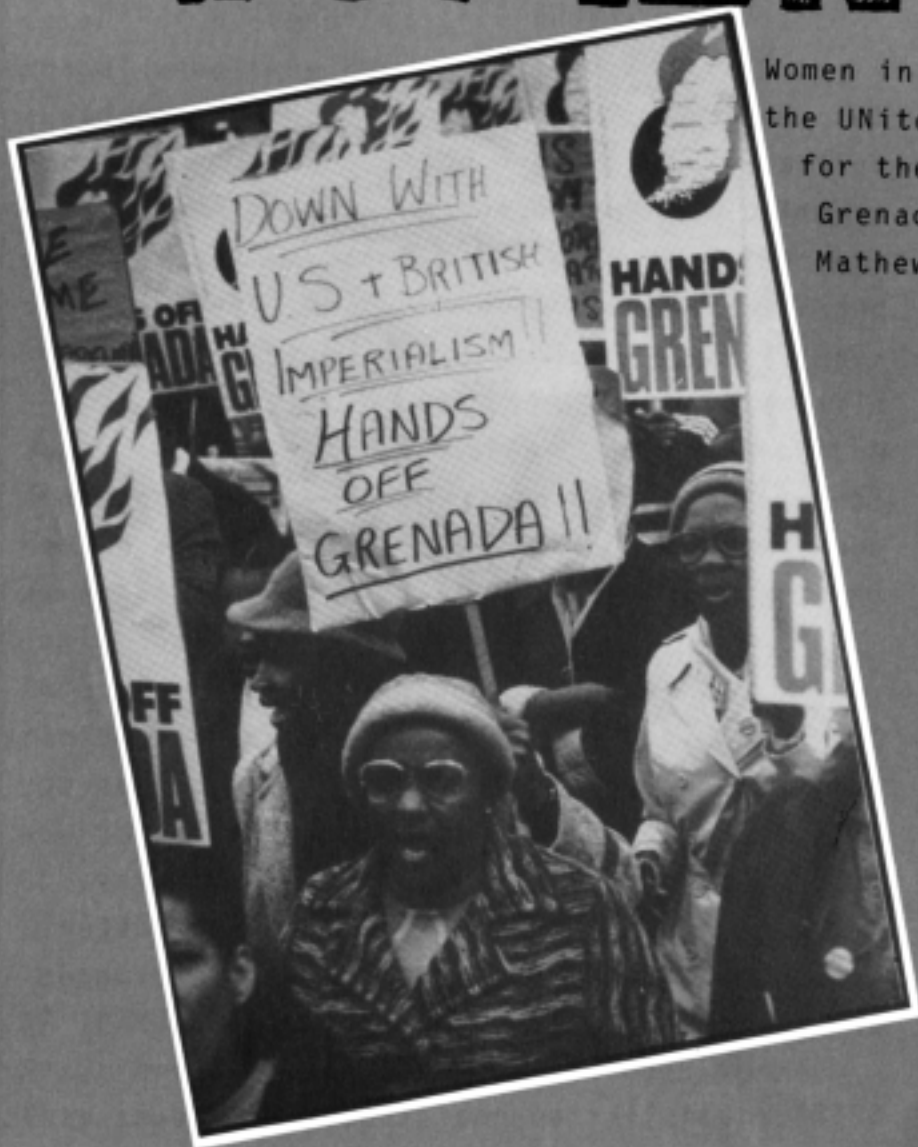 Women in
the UNite
for the
Grenad
Mathew
DOWN WITH
U.S + BRITISH
IMPERIALISM!!
HANDS
OFF
GRENADA!!
HANDS
GREN
S OFF
ADA
HA
G
E
ME
FF
DA
H
G